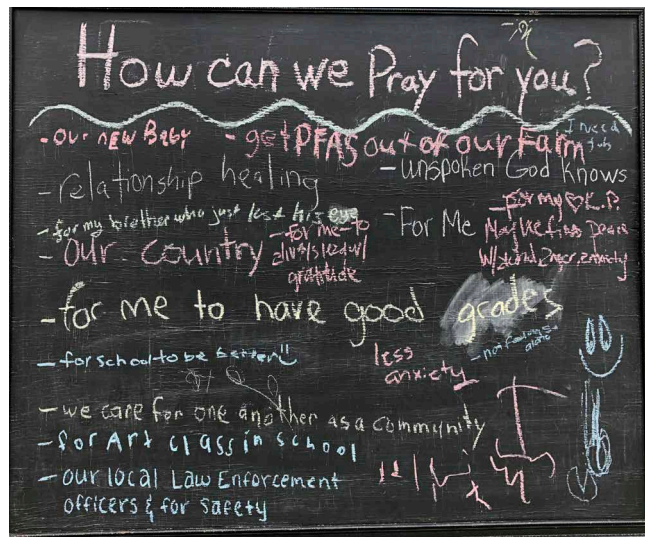 How can we Pray for you?
- our new Baby
- get PFAS out of our Farm
I need
Job
- relationship healing
- unspoken God knows
- for my brother who just lost his eye
- For Me
- for my ♡ K.P.
May he find peace
w/ anxiety
- Our country
- for me - to
live w/
gratitude
- for me to have good grades
- for school to be better!!
less
anxiety
- not feeling
alone
- we care for one another as a community
- for Art class in school
- our local Law Enforcement
officers & for safety